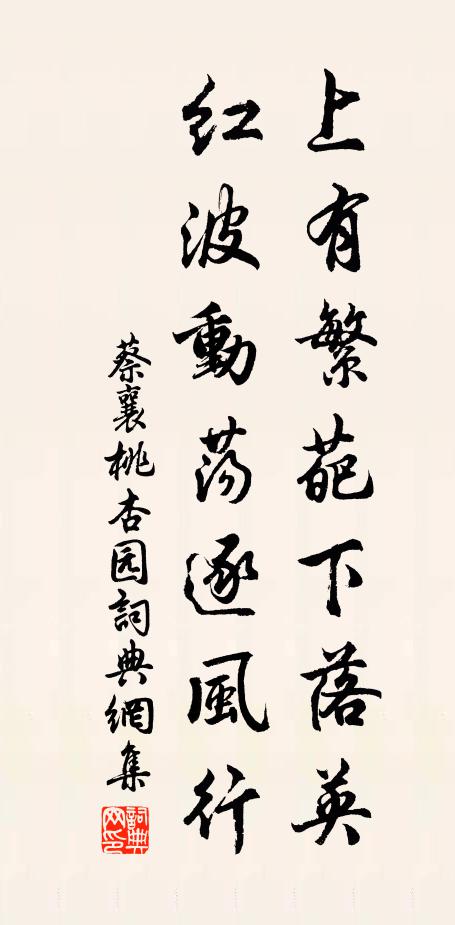 上有繁葩下落英
紅波動蕩逐風行
蔡襄桃杏园詞典網集
詞典网印